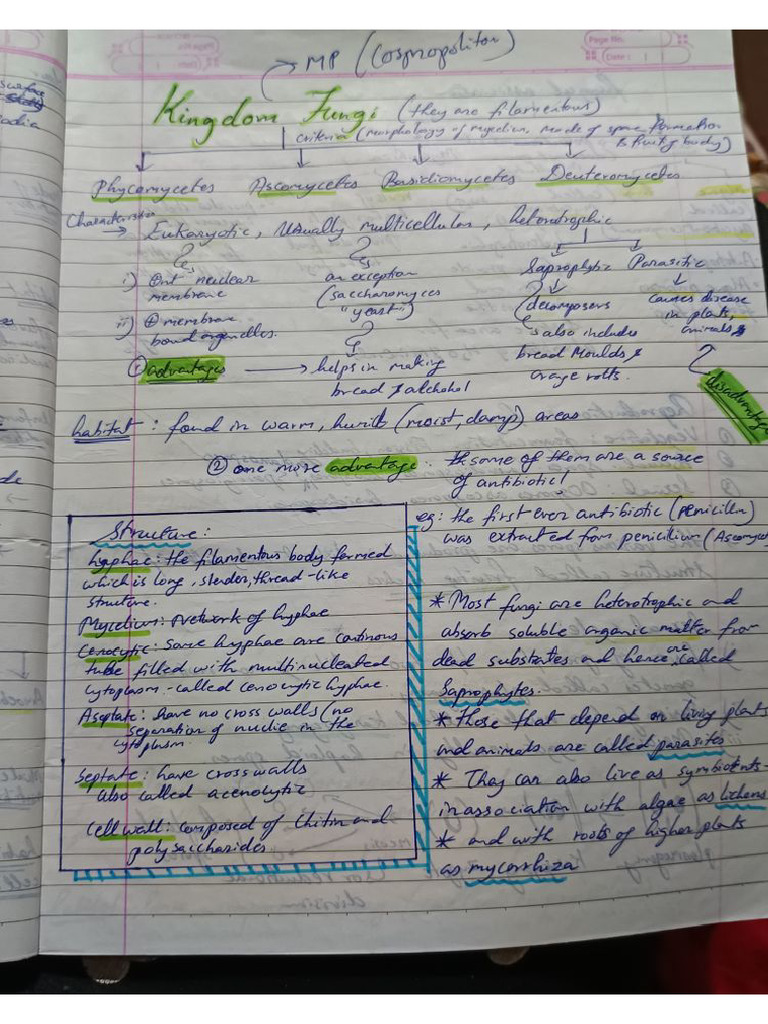 Page No.
Date:
→ MP (Cosmopolitan)
Kingdom Fungi (they are filamentous)
criteria (morphology of mycelium, mode of spore formation
& fruiting body)
Phycomycetes Ascomycetes Basidiomycetes Deuteromycetes
Characteristics
→ Eukaryotic, Usually multicellular, heterotrophic
i) nuclear
membrane
ii) membrane
bound organelles.
an exception
(saccharomyces
"yeast")
Saprophytic Parasitic
(decomposers
also includes
bread Moulds &
orange rotts.
causes disease
in plants,
animals
① advantages → helps in making
bread & alchohol
disadvantage
habitat : found in warm, humid (moist, damp) areas
② one more advantage. some of them are a source
of antibiotic!
eg: the first ever antibiotic (penicillin)
was extracted from penicillium (Ascomy
Structure:
hyphae: the filamentous body formed
which is long, slender, thread-like
structure.
Mycelium: network of hyphae
Cenocytic: some hyphae are continous
tube filled with multinucleated
cytoplasm. called cenocytic hyphae.
Aseptate: have no cross walls (no
seperation of nuclie in the
cytoplasm
Septate: have cross walls
also called acenocytic
Cell wall: composed of Chitin and
polysaccharides
* Most fungi are heterotrophic and
absorb soluble organic matter from
dead substrates and hence are called
Saprophytes.
* Those that depend on living plants
and animals are called parasites
* They can also live as symbionts-
in association with algae as lichens
* and with roots of higher plants
as mycorrhiza